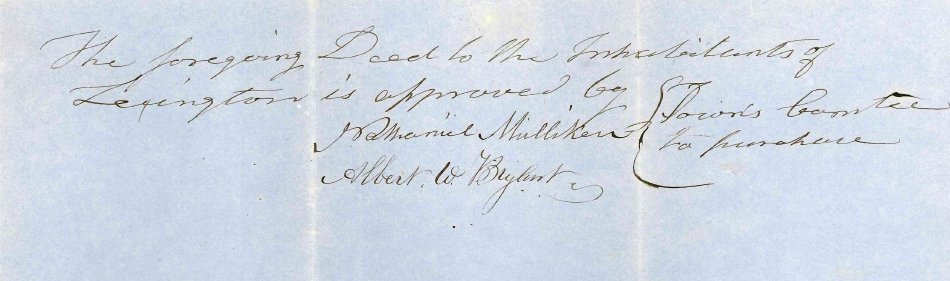 The foregoing Deed to the Inhabitants of
Lexington is approved by
Nathaniel Mulliken { Town's Comtee
Albert. W. Bryant { to purchase